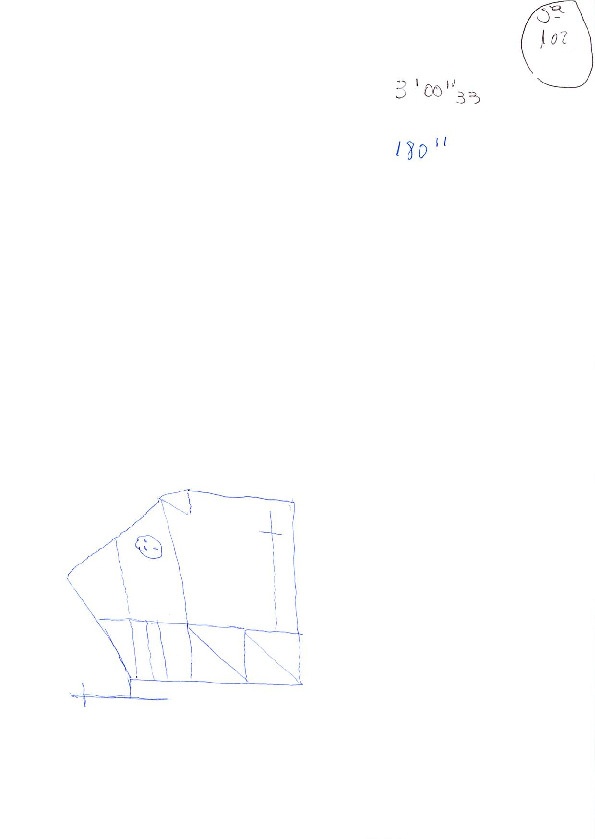 3ª
102
3'00''33
180''